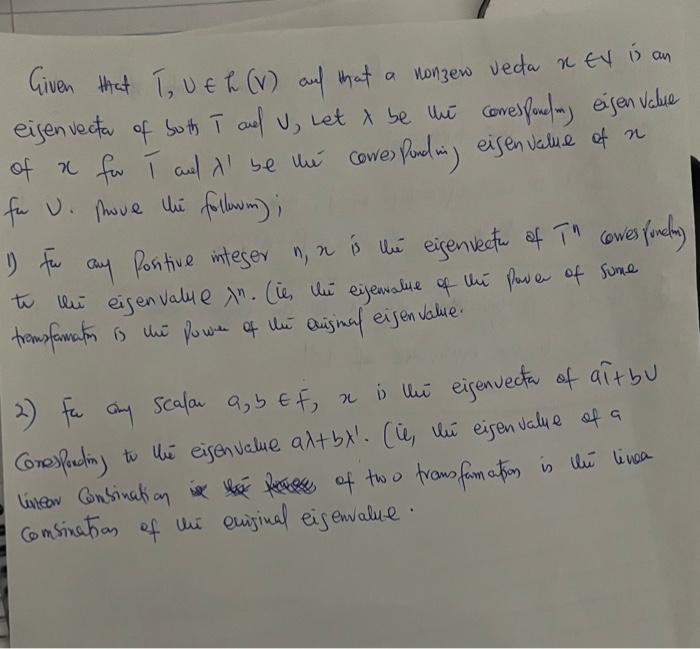 Given that T, U ∈ L(V) and that a nonzero vector x ∈ V is an
eigenvector of both T and U, Let λ be the corresponding eigenvalue
of x for T and λ' be the corresponding eigenvalue of x
for U. Prove the following;
1) For any Positive integer n, x is the eigenvector of Tⁿ corresponding
to the eigenvalue λⁿ. (ie, the eigenvalue of the Power of some
transformation is the Power of the original eigenvalue.
2) For any scalar a, b ∈ F, x is the eigenvector of aT + bU
Corresponding to the eigenvalue aλ + bλ'. (ie, the eigenvalue of a
linear Combination of two transformations is the linear
combination of the original eigenvalue.